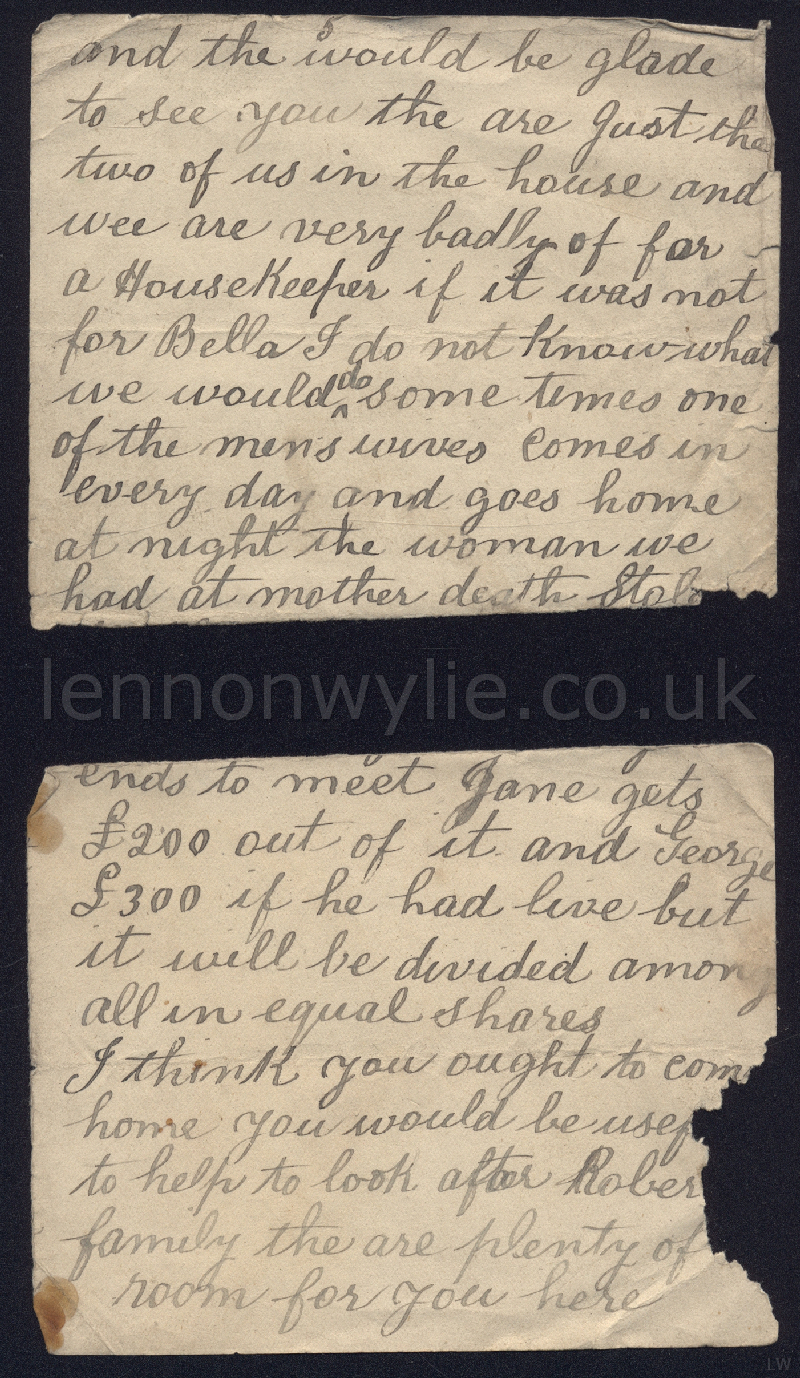 and the would be glade
to see you the are Just the
two of us in the house and
wee are very badly of for
a HouseKeeper if it was not
for Bella I do not Know what
we would do some times one
of the mens wives comes in
every day and goes home
at night the woman we
had at mother death Stole
lennonwylie.co.uk
ends to meet Jane gets
£200 out of it and George
£300 if he had live but
it will be divided among
all in equal shares
I think you ought to com
home you would be usef
to help to look after Rober
family the are plenty of
room for you here
LW